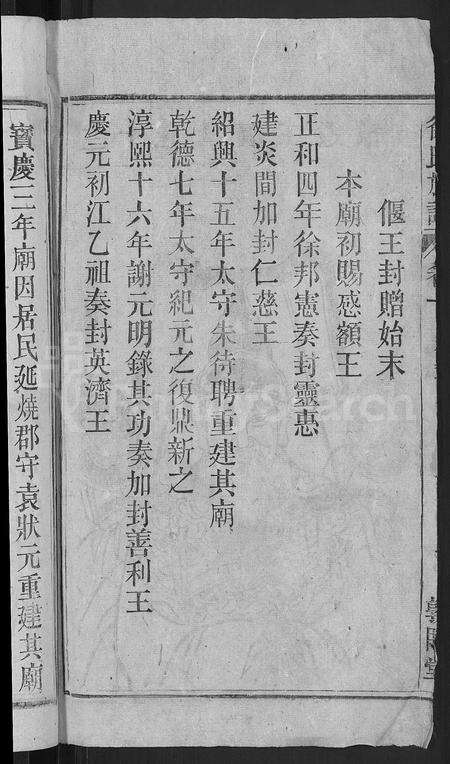 偃王封贈始末
本廟初賜感額王
正和四年徐邦憲奏封靈惠
建炎間加封仁慈王
紹興十五年太守朱待聘重建其廟
乾德七年太守紀元之復鼎新之
淳熙十六年謝元明錄其功奏加封善利王
慶元初江乙祖奏封英濟王
寳慶三年廟因居民延燒郡守袁狀元重建其廟